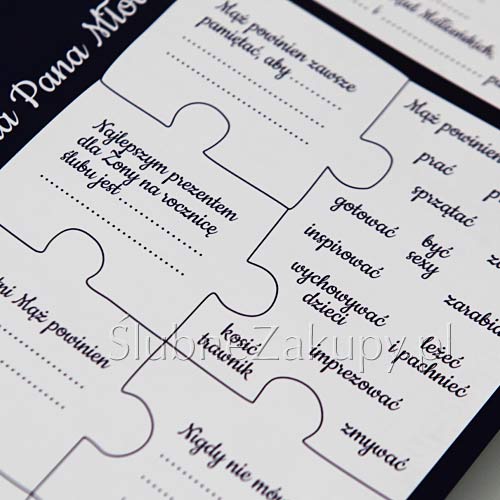 Pana Mło
Mąż powinien zawsze
pamiętać, aby ..........
Najlepszym prezentem
dla Żony na rocznicę
ślubu jest..............
Mąż powinien
Mąż powinien
prać
sprzątać
gotować
być
sexy
inspirować
wychowywać
dzieci
zarabia
kosić
trawnik
leżeć
i pachnieć
imprezować
zmywać
Nigdy nie mów
ŚlubneZakupy.pl